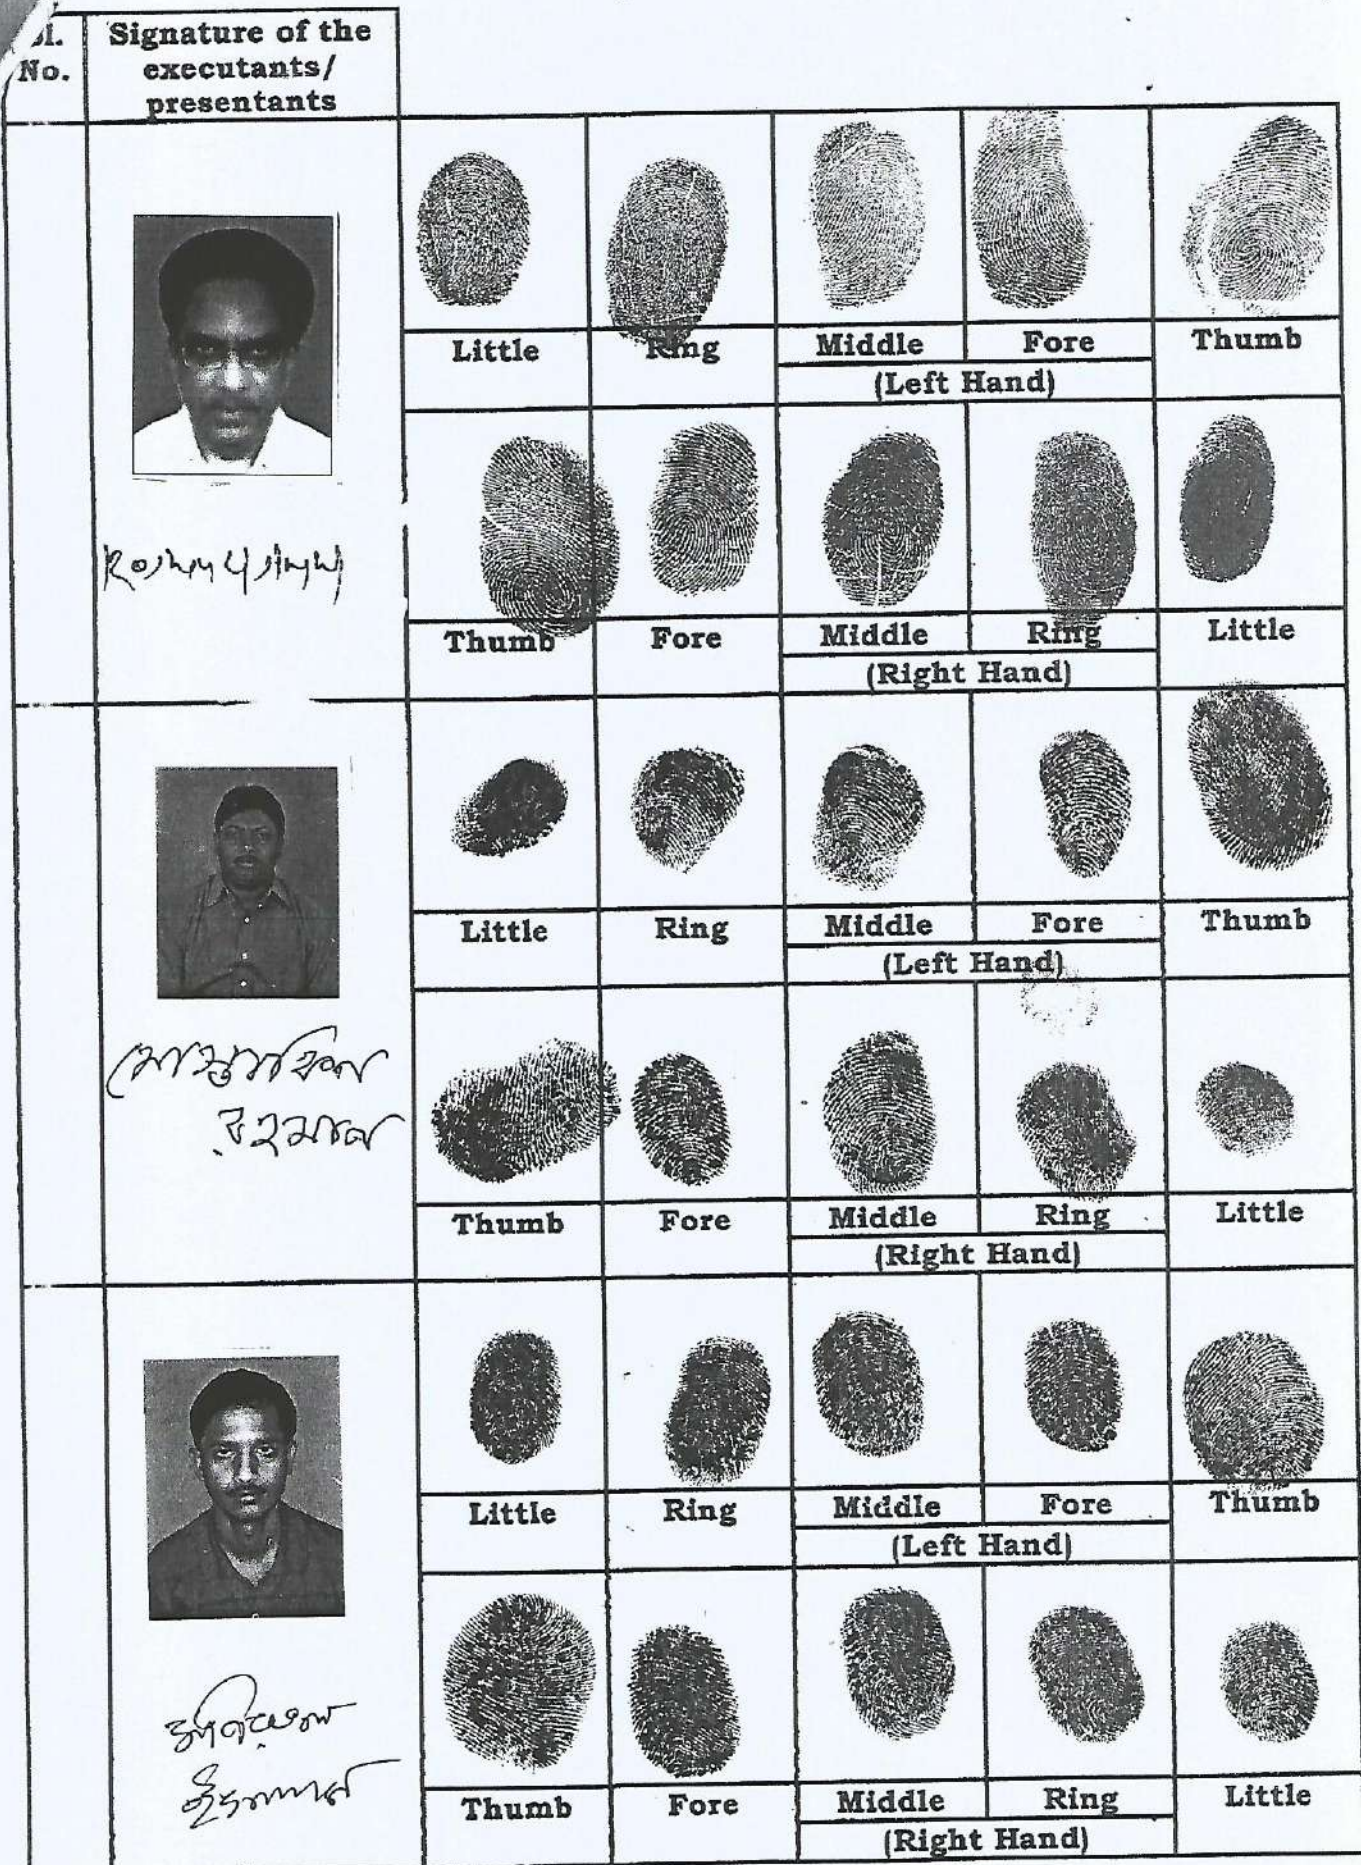 Sl. No.
Signature of the
executants/
presentants
Little Ring Middle Fore Thumb
(Left Hand)
Thumb Fore Middle Ring Little
(Right Hand)
Little Ring Middle Fore Thumb
(Left Hand)
রহমান
Thumb Fore Middle Ring Little
(Right Hand)
Little Ring Middle Fore Thumb
(Left Hand)
Thumb Fore Middle Ring Little
(Right Hand)